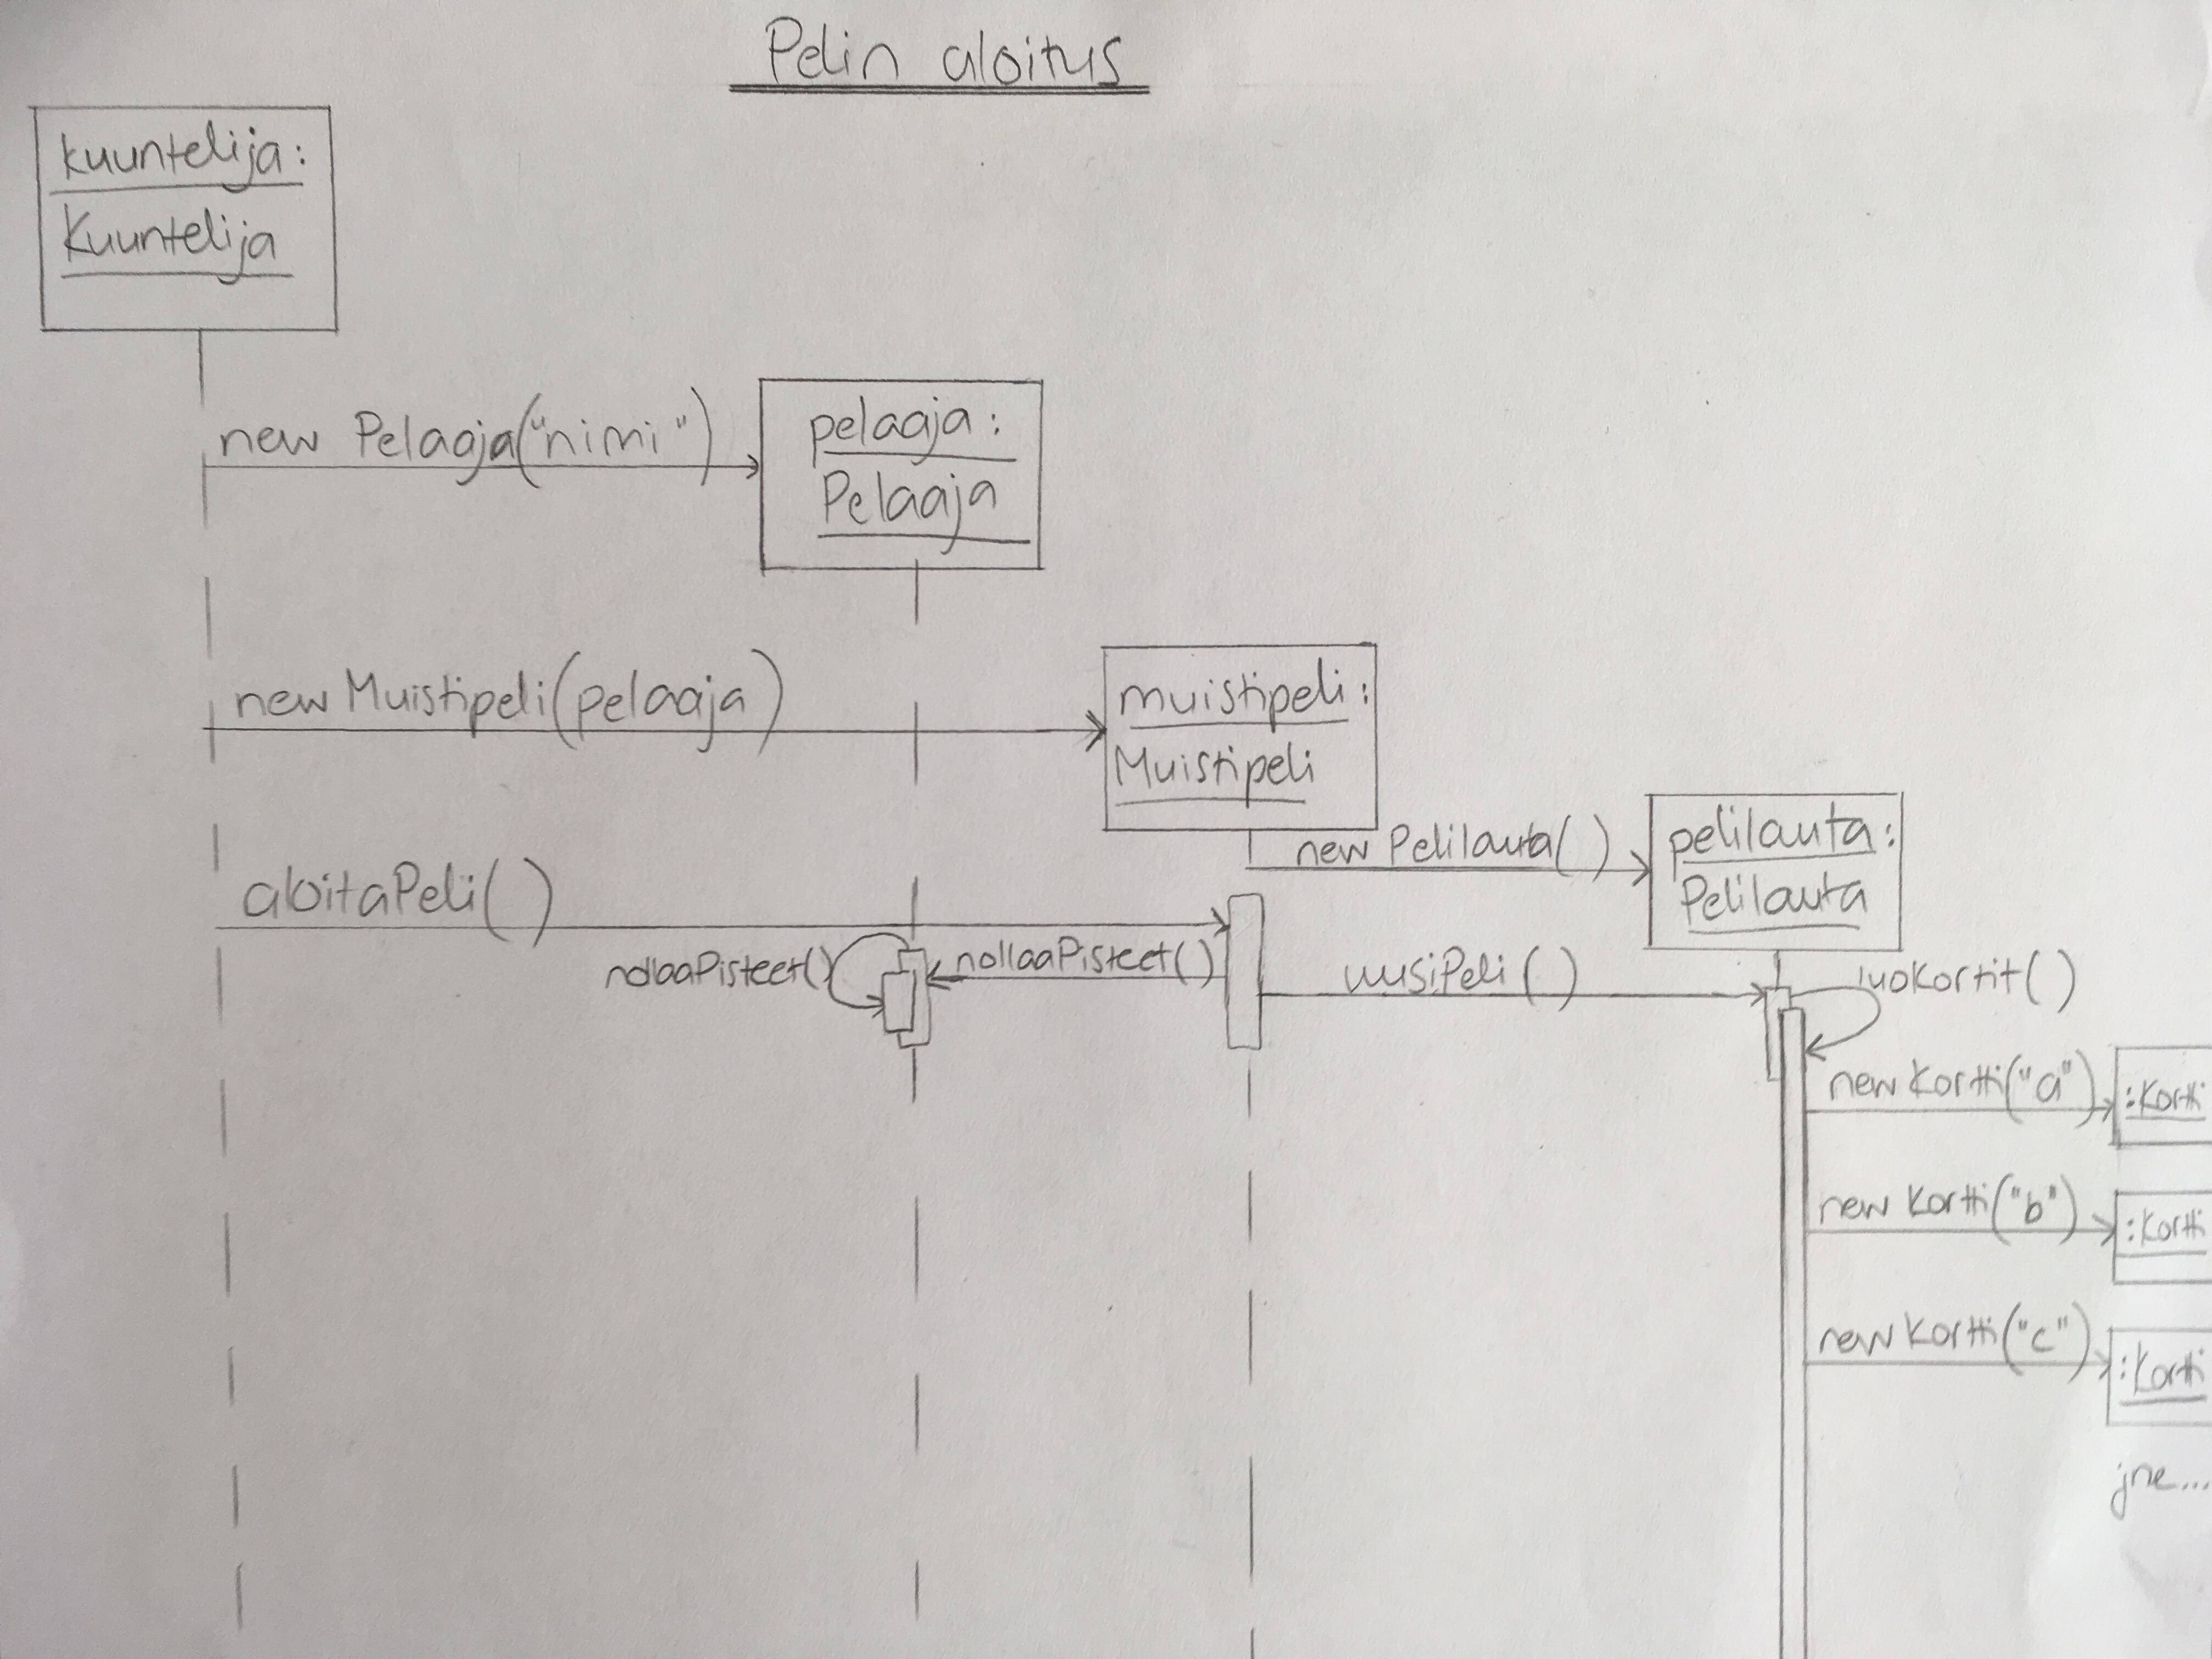 Pelin aloitus
kuuntelija:
Kuuntelija
new Pelaaja("nimi")
pelaaja:
Pelaaja
new Muistipeli(pelaaja)
muistipeli:
Muistipeli
new Pelilauta()
pelilauta:
Pelilauta
aloitaPeli()
nollaaPisteet()
nollaaPisteet()
uusiPeli()
luoKortit()
new Kortti("a")
:Kortti
new Kortti("b")
:Kortti
new Kortti("c")
:Kortti
jne...